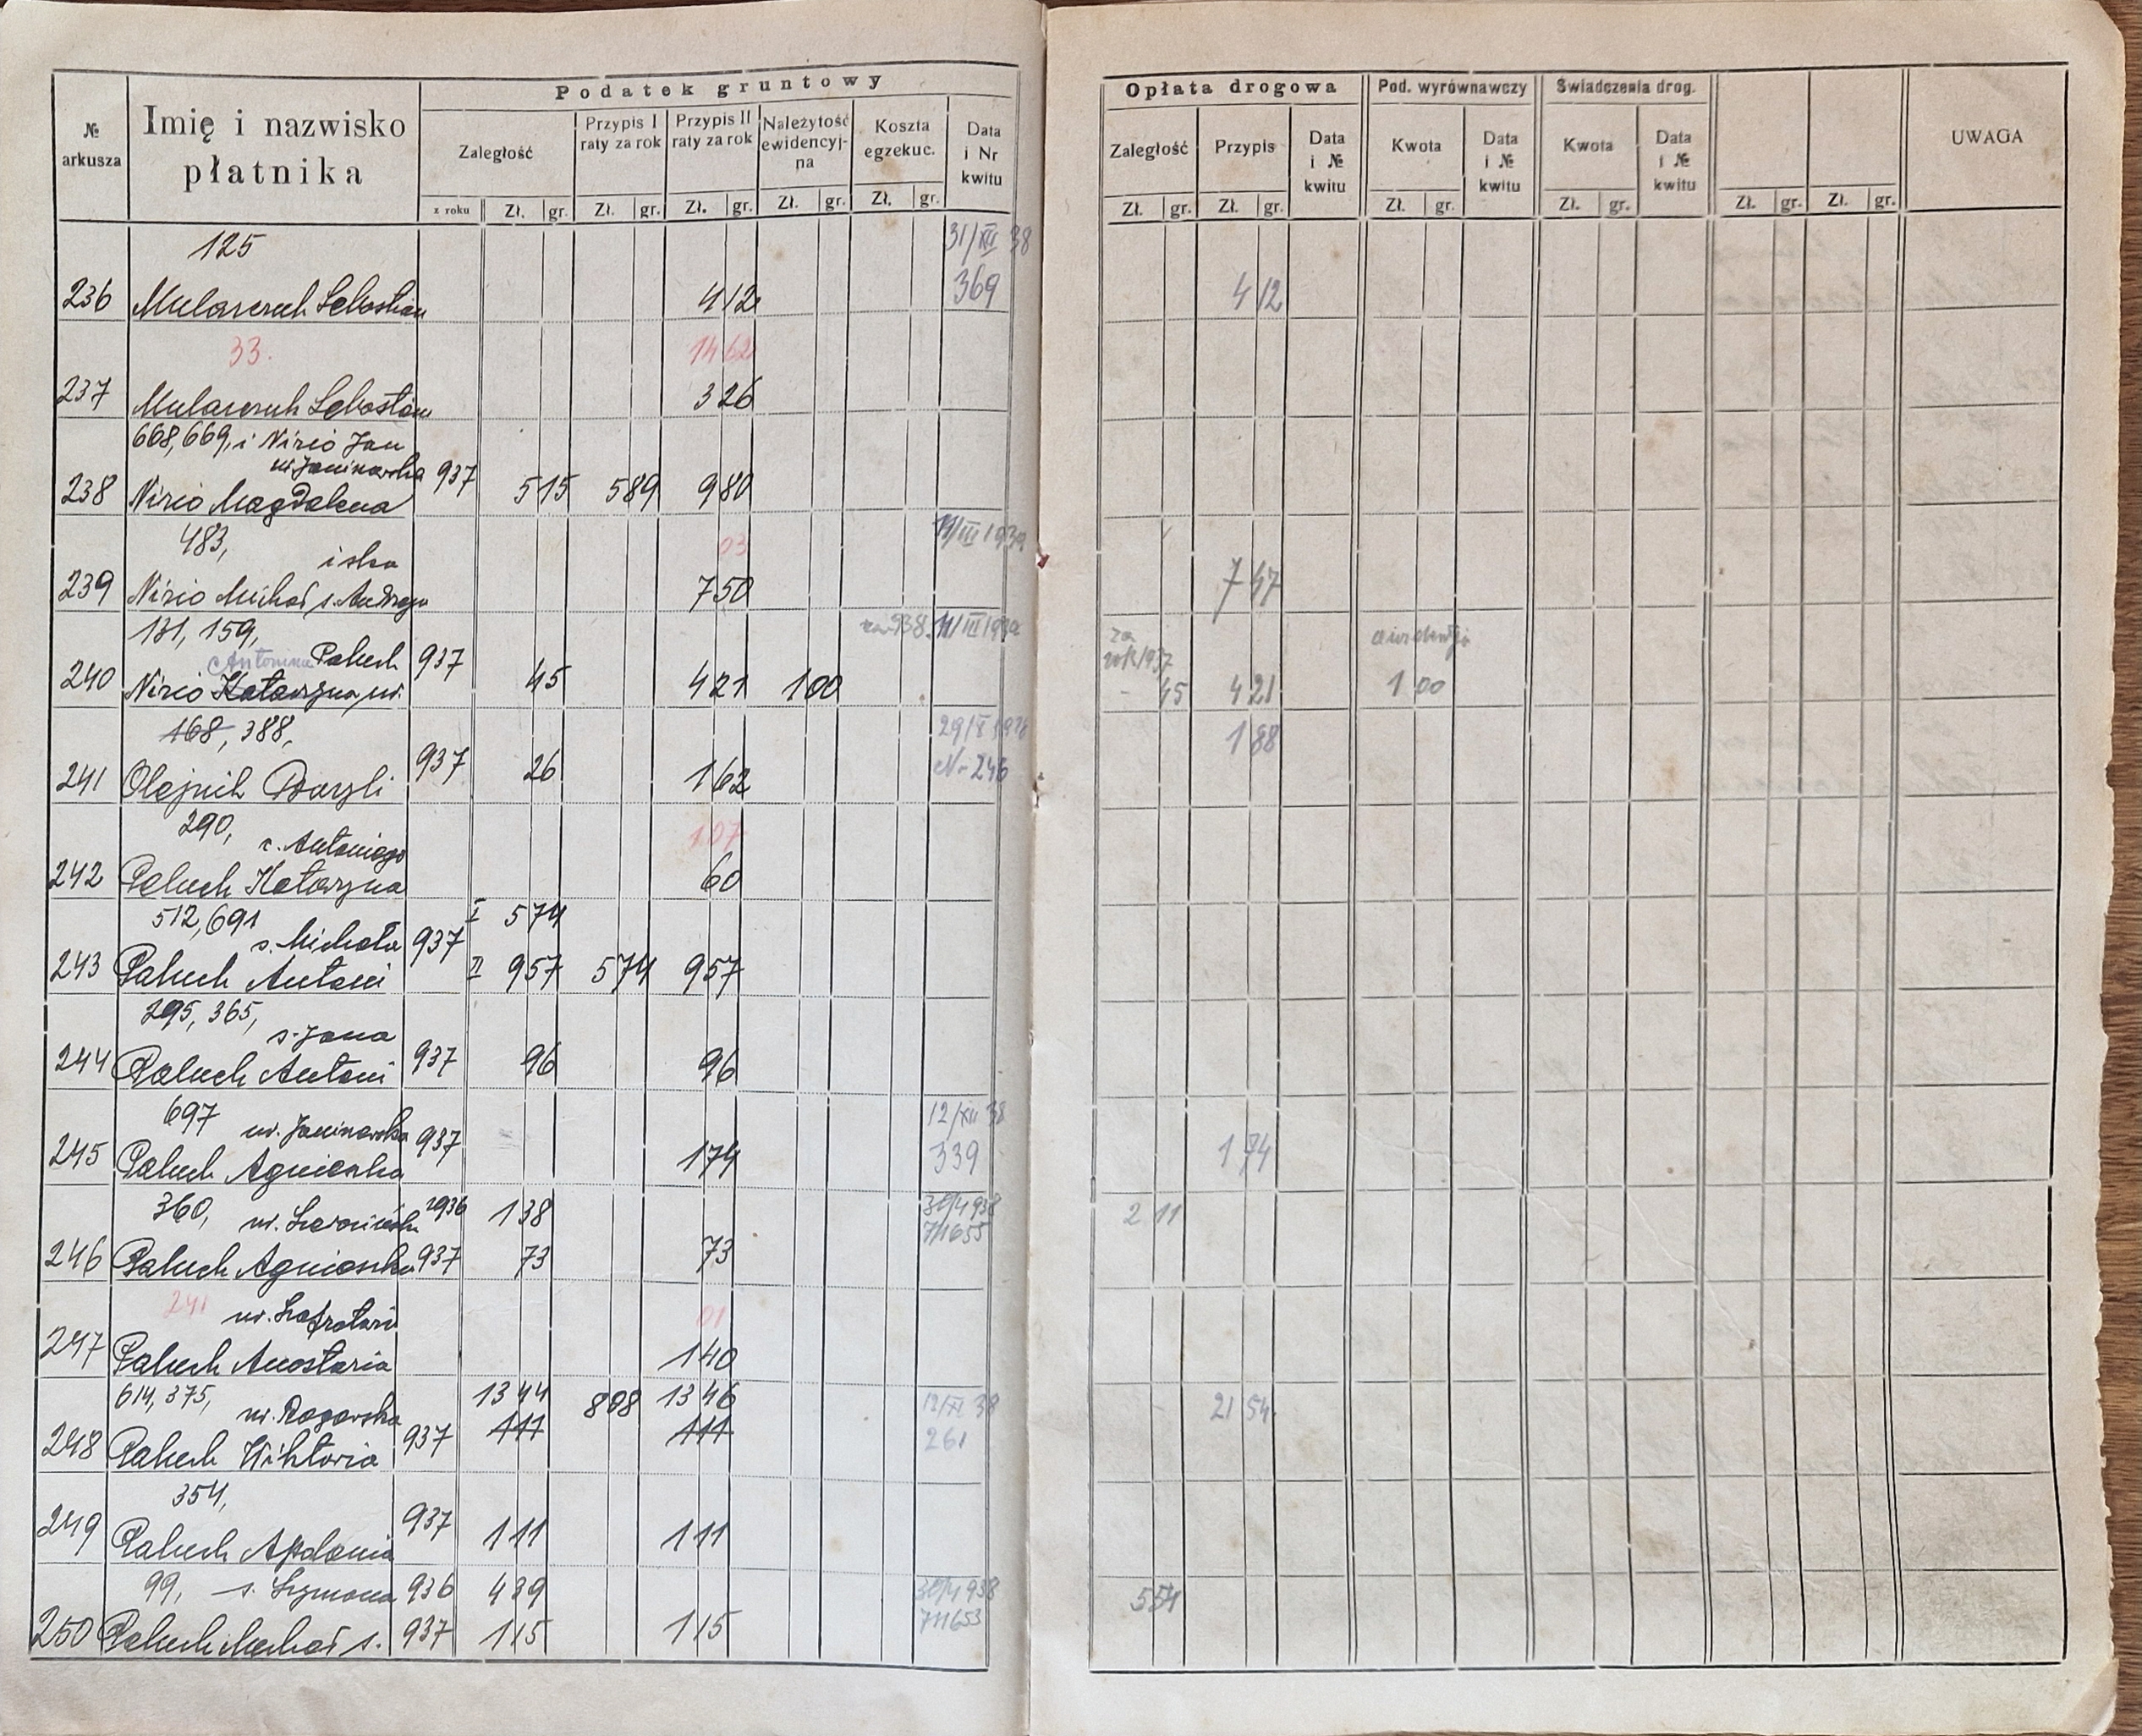 Podatek gruntowy
№ arkusza
Imię i nazwisko płatnika
Zaległość
Przypis I raty za rok
Przypis II raty za rok
Należytość ewidencyj-na
Koszta egzekuc.
Data i Nr kwitu
z roku Zł. gr. Zł. gr. Zł. gr. Zł. gr. Zł. gr.
Opłata drogowa
Pod. wyrównawczy
Świadczenia drog.
UWAGA
Zaległość
Przypis
Data i № kwitu
Kwota
Data i № kwitu
Kwota
Data i № kwitu
Zł. gr. Zł. gr. Zł. gr. Zł. gr. Zł. gr. Zł. gr.
125 31/XII 38
236 Sebastian 4 12 369 4 12
33. 14 62
237 3 26
668, 669, i Nizio Jan
w. Janinowska 937
238 Nizio Magdalena 5 15 5 89 9 80
483, i ska 03 11/III 1939
239 Nizio Michał s. Andrzeja 7 50 7 47
131, 159, 938. 11/III 1939 za rok/937
Antonina Paluch 937
240 Nizio Katarzyna, w. 45 4 21 1 00 - 45 4 21 1 00
168, 388, 29/X 1938 1 88
241 Olejnik Bazyli 937 26 1 62 Nr 246
290, c. Antoniego 1 07
242 Paluch Katarzyna 60
512, 691 s. Michała 937 I 5 74
243 Paluch Antoni II 9 57 5 74 9 57
295, 365, s. Jana
244 Paluch Antoni 937 96 96
697 w. Janinowska 937 12/XII 38
245 Paluch Agnieszka 1 74 339 1 74
360, w. 1936 1 38 30/4 938 2 11
246 Paluch Agnieszka 937 73 73 7/1655
241 w. 01
247 Paluch 1 40
614, 375, w. Rogowska 13 44 8 08 13 46 12/XI 38 - 21 54
248 Paluch Wiktoria 937 1 11 1 11 261
354,
249 Paluch Apolonia 937 1 11 1 11
99, s. Szymona 936 4 39 30/4 938 5 54
250 Paluch Michał s. 937 1 15 1 15 7/1653